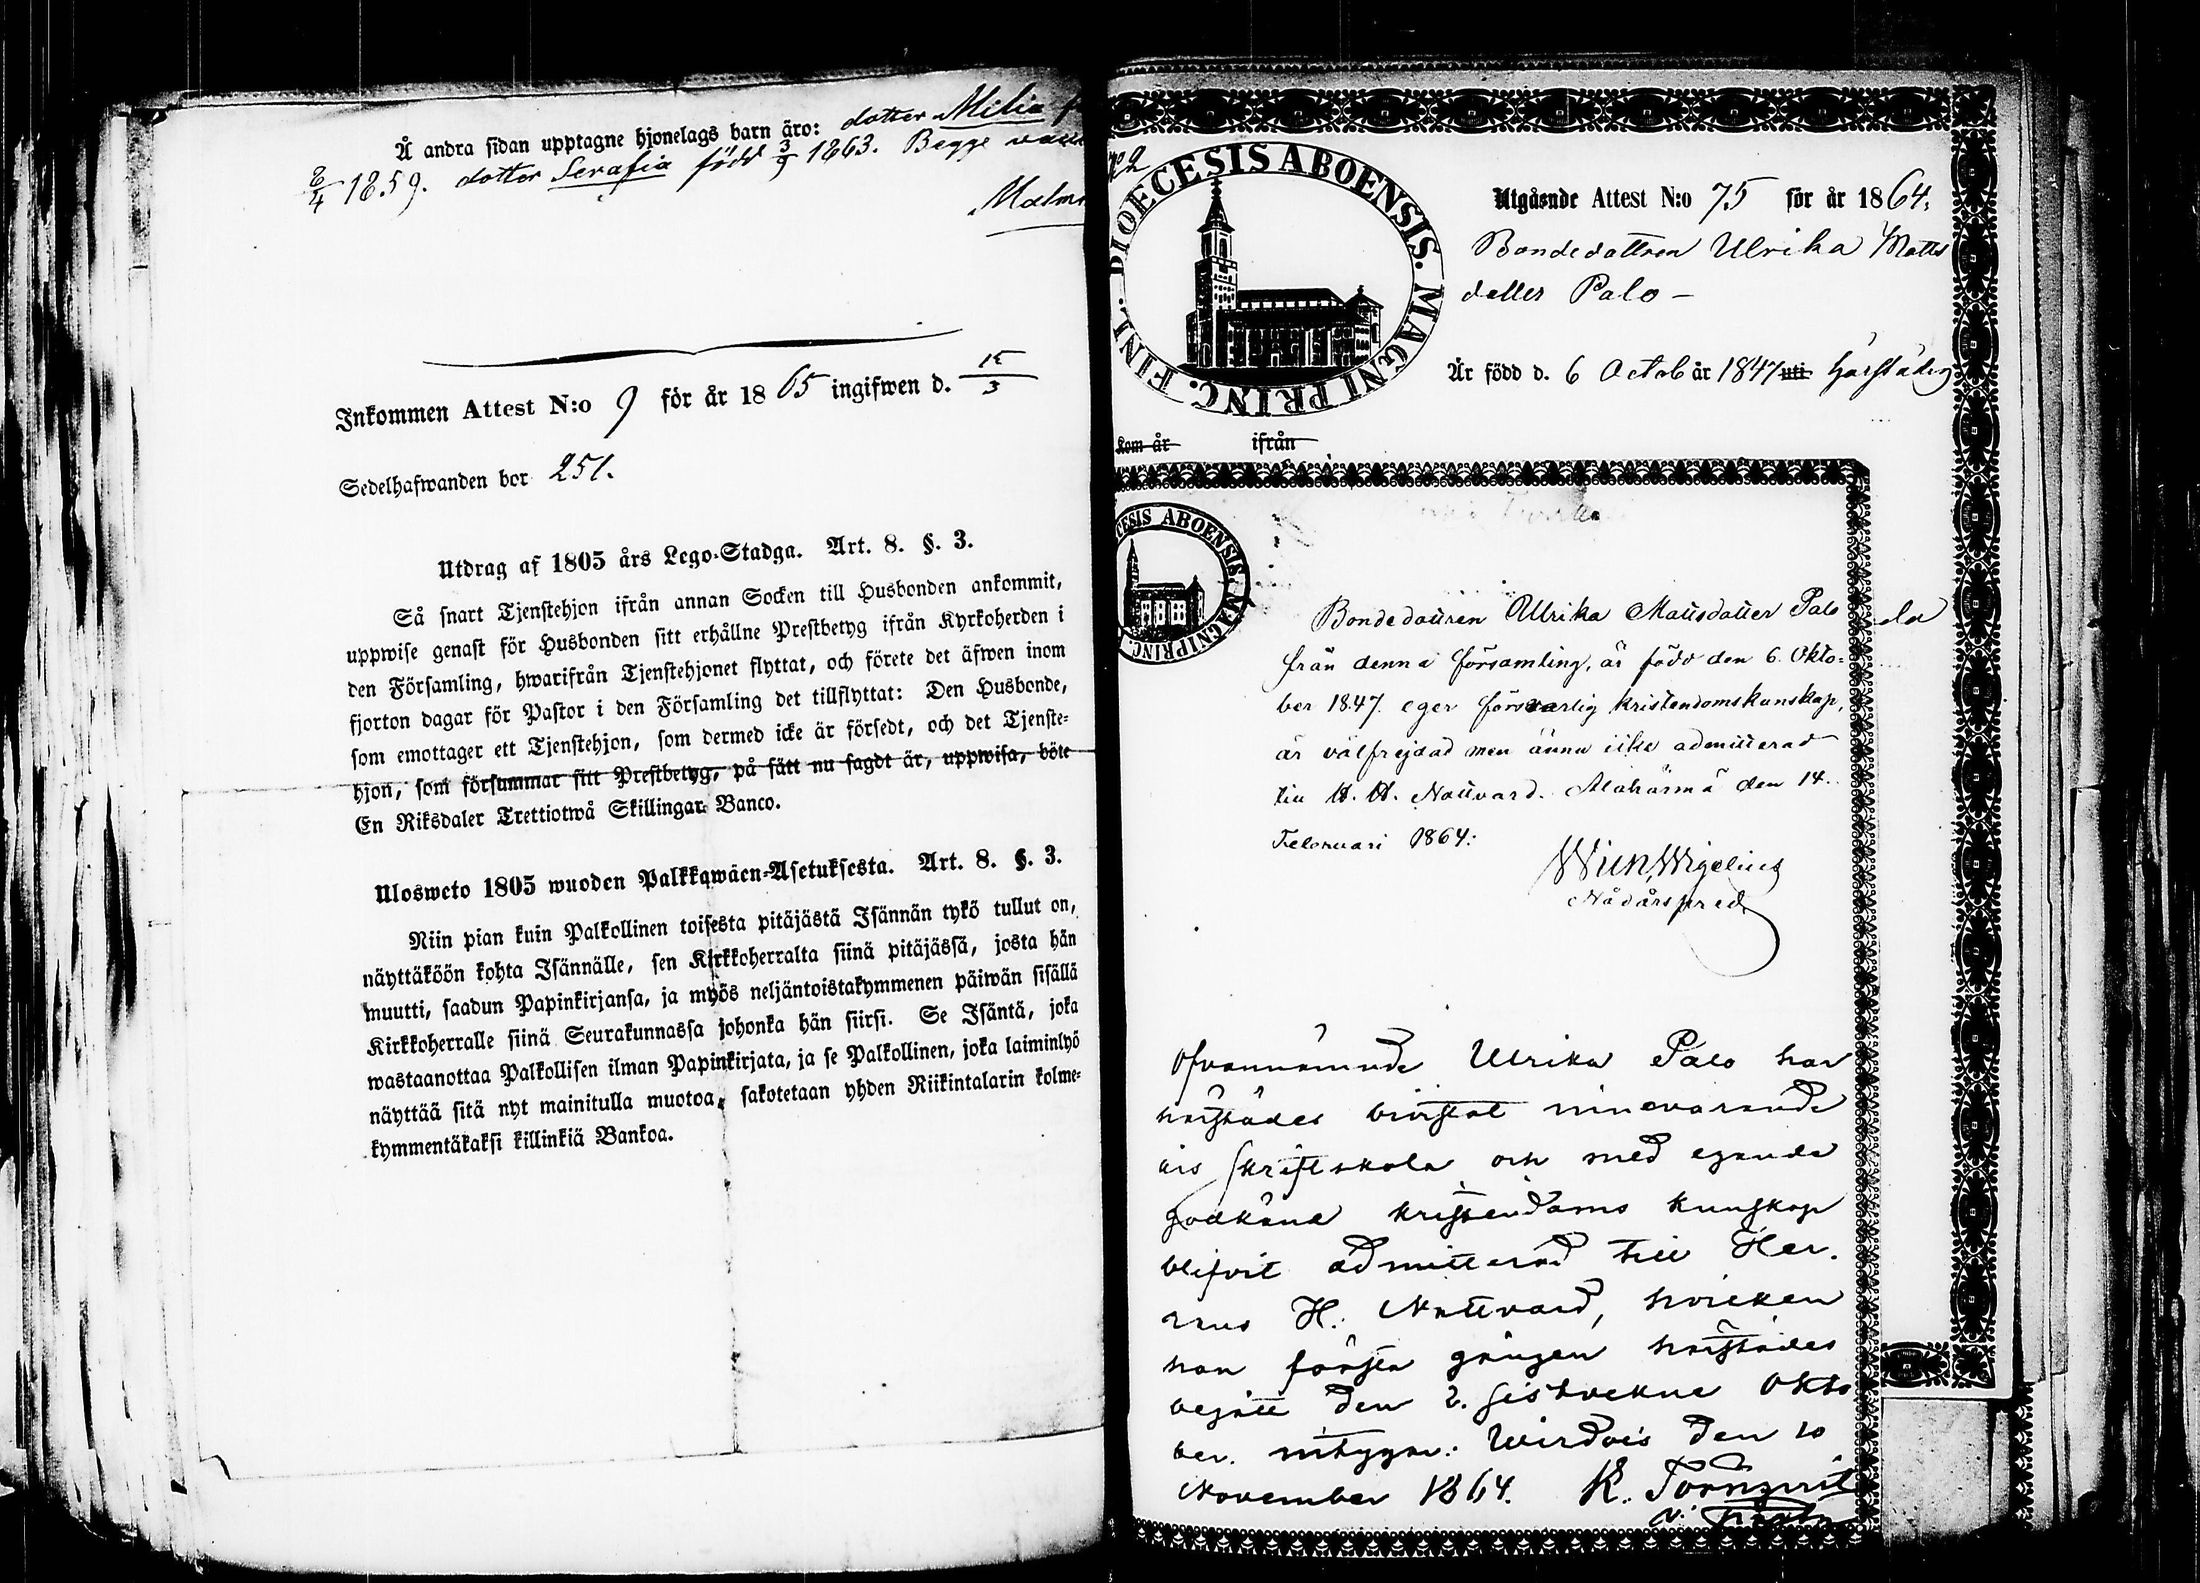 Å andra sidan upptagne hjonelags barn äro: dotter Milia
8/4 1859. dotter Serafia född 3/9 1863. Begge
Malm
Inkommen Attest N:o 9 för år 1865 ingifwen d. 15/3
Sedelhafwanden bor 251.
Utdrag af 1805 års Lego-Stadga. Art. 8. §. 3.
Så snart Tjenstehjon ifrån annan Socken till Husbonden ankommit,
uppwise genast för Husbonden sitt erhållne Prestbetyg ifrån Kyrkoherden i
den Församling, hwarifrån Tjenstehjonet flyttat, och förete det äfwen inom
fjorton dagar för Pastor i den Församling det tillflyttat: Den Husbonde,
som emottager ett Tjenstehjon, som dermed icke är försedt, och det Tjenste-
hjon, som försummar sitt Prestbetyg, på sätt nu sagdt är, uppwisa, böte
En Riksdaler Trettiotwå Skillingar Banco.
Ulosweto 1805 wuoden Palkkawäen-Asetuksesta. Art. 8. §. 3.
Niin pian kuin Palkollinen toisesta pitäjästä Isännän tykö tullut on,
näyttäköön kohta Isännälle, sen Kirkkoherralta siinä pitäjässä, josta hän
muutti, saadun Papinkirjansa, ja myös neljäntoistakymmenen päiwän sisällä
Kirkkoherralle siinä Seurakunnassa johonka hän siirsi. Se Isäntä, joka
wastaanottaa Palkollisen ilman Papinkirjata, ja se Palkollinen, joka laiminlyö
näyttää sitä nyt mainitulla muotoa, sakotetaan yhden Riikintalarin kolme-
kymmentäkaksi killinkiä Bankoa.
DIOECESIS ABOENSIS. MAGNI PRINC. FINL.
Utgående Attest N:o 75 för år 1864.
Bondedottren Ulrika Matts
dotter Palo –
Är född d. 6 Octob år 1847 uti härstädes
kom år ifrån
CESIS ABOENSIS. MAGNI PRINC.
Bondedottren Ulrika Mattsdotter Palo
från denna församling, är född den 6. Okto-
ber 1847. eger försvarlig kristendomskunskap,
är välfrejdad men ännu icke admitterad
till H. H. Nattvard. Alahärmä den 14.
Februari 1864:
Wilh. Wigelius
Nådårspred.
Ofvannämnde Ulrika Palo har
härstädes bivistat innevarande
års skriftskola och med egande
godkänd kristendoms kunskap
blifvit admitterad till Her-
rans H. Nattvard, hvilken
hon första gången härstädes
begått den 2. sistvekne Okto
ber. intygar: Wirdois den 10
November 1864. K. Törnqvist